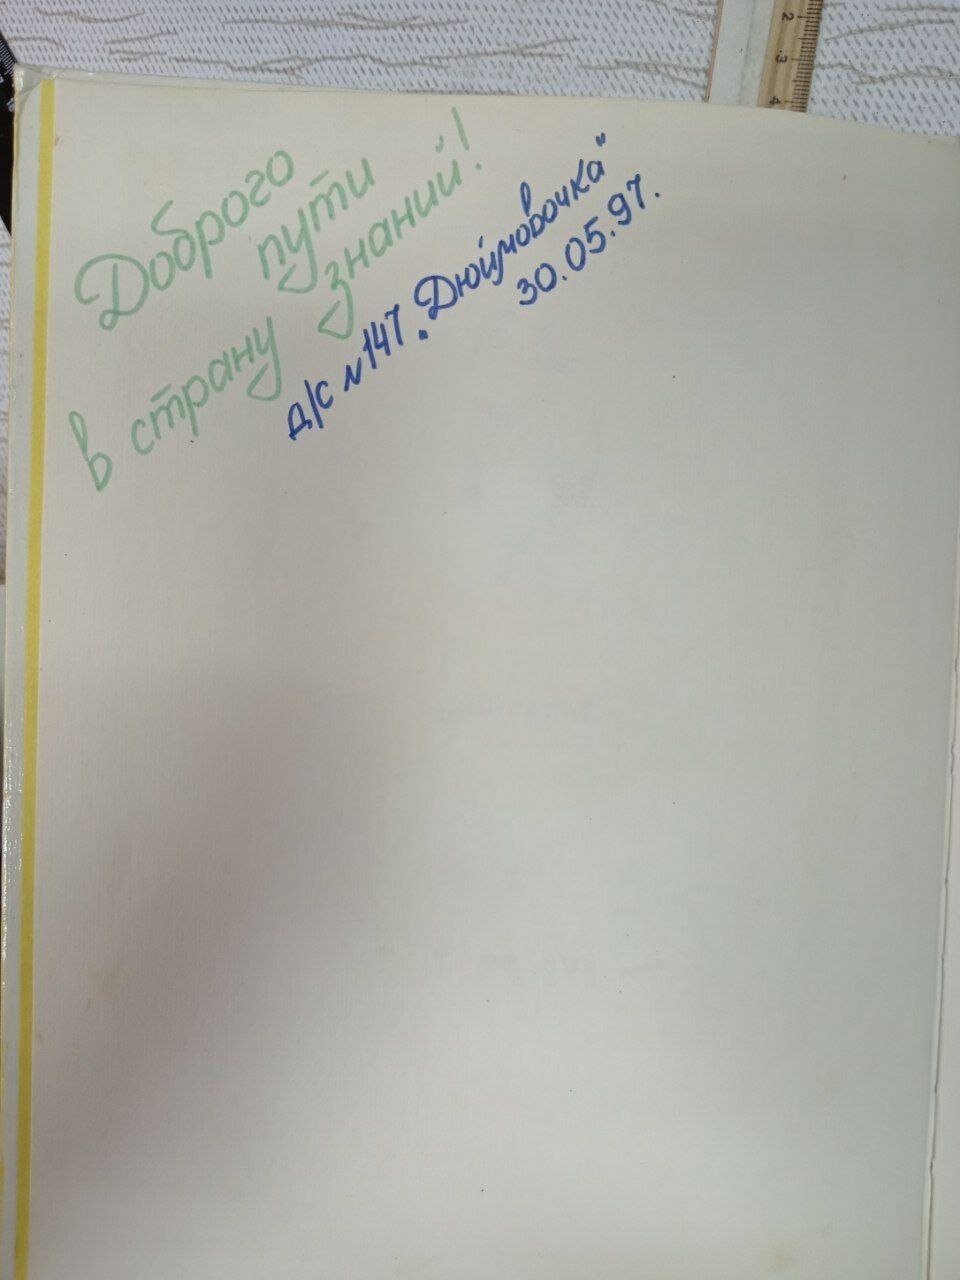 Доброго
пути
в страну знаний!
д/с N147 „Дюймовочка"
30.05.97.
2
3
4